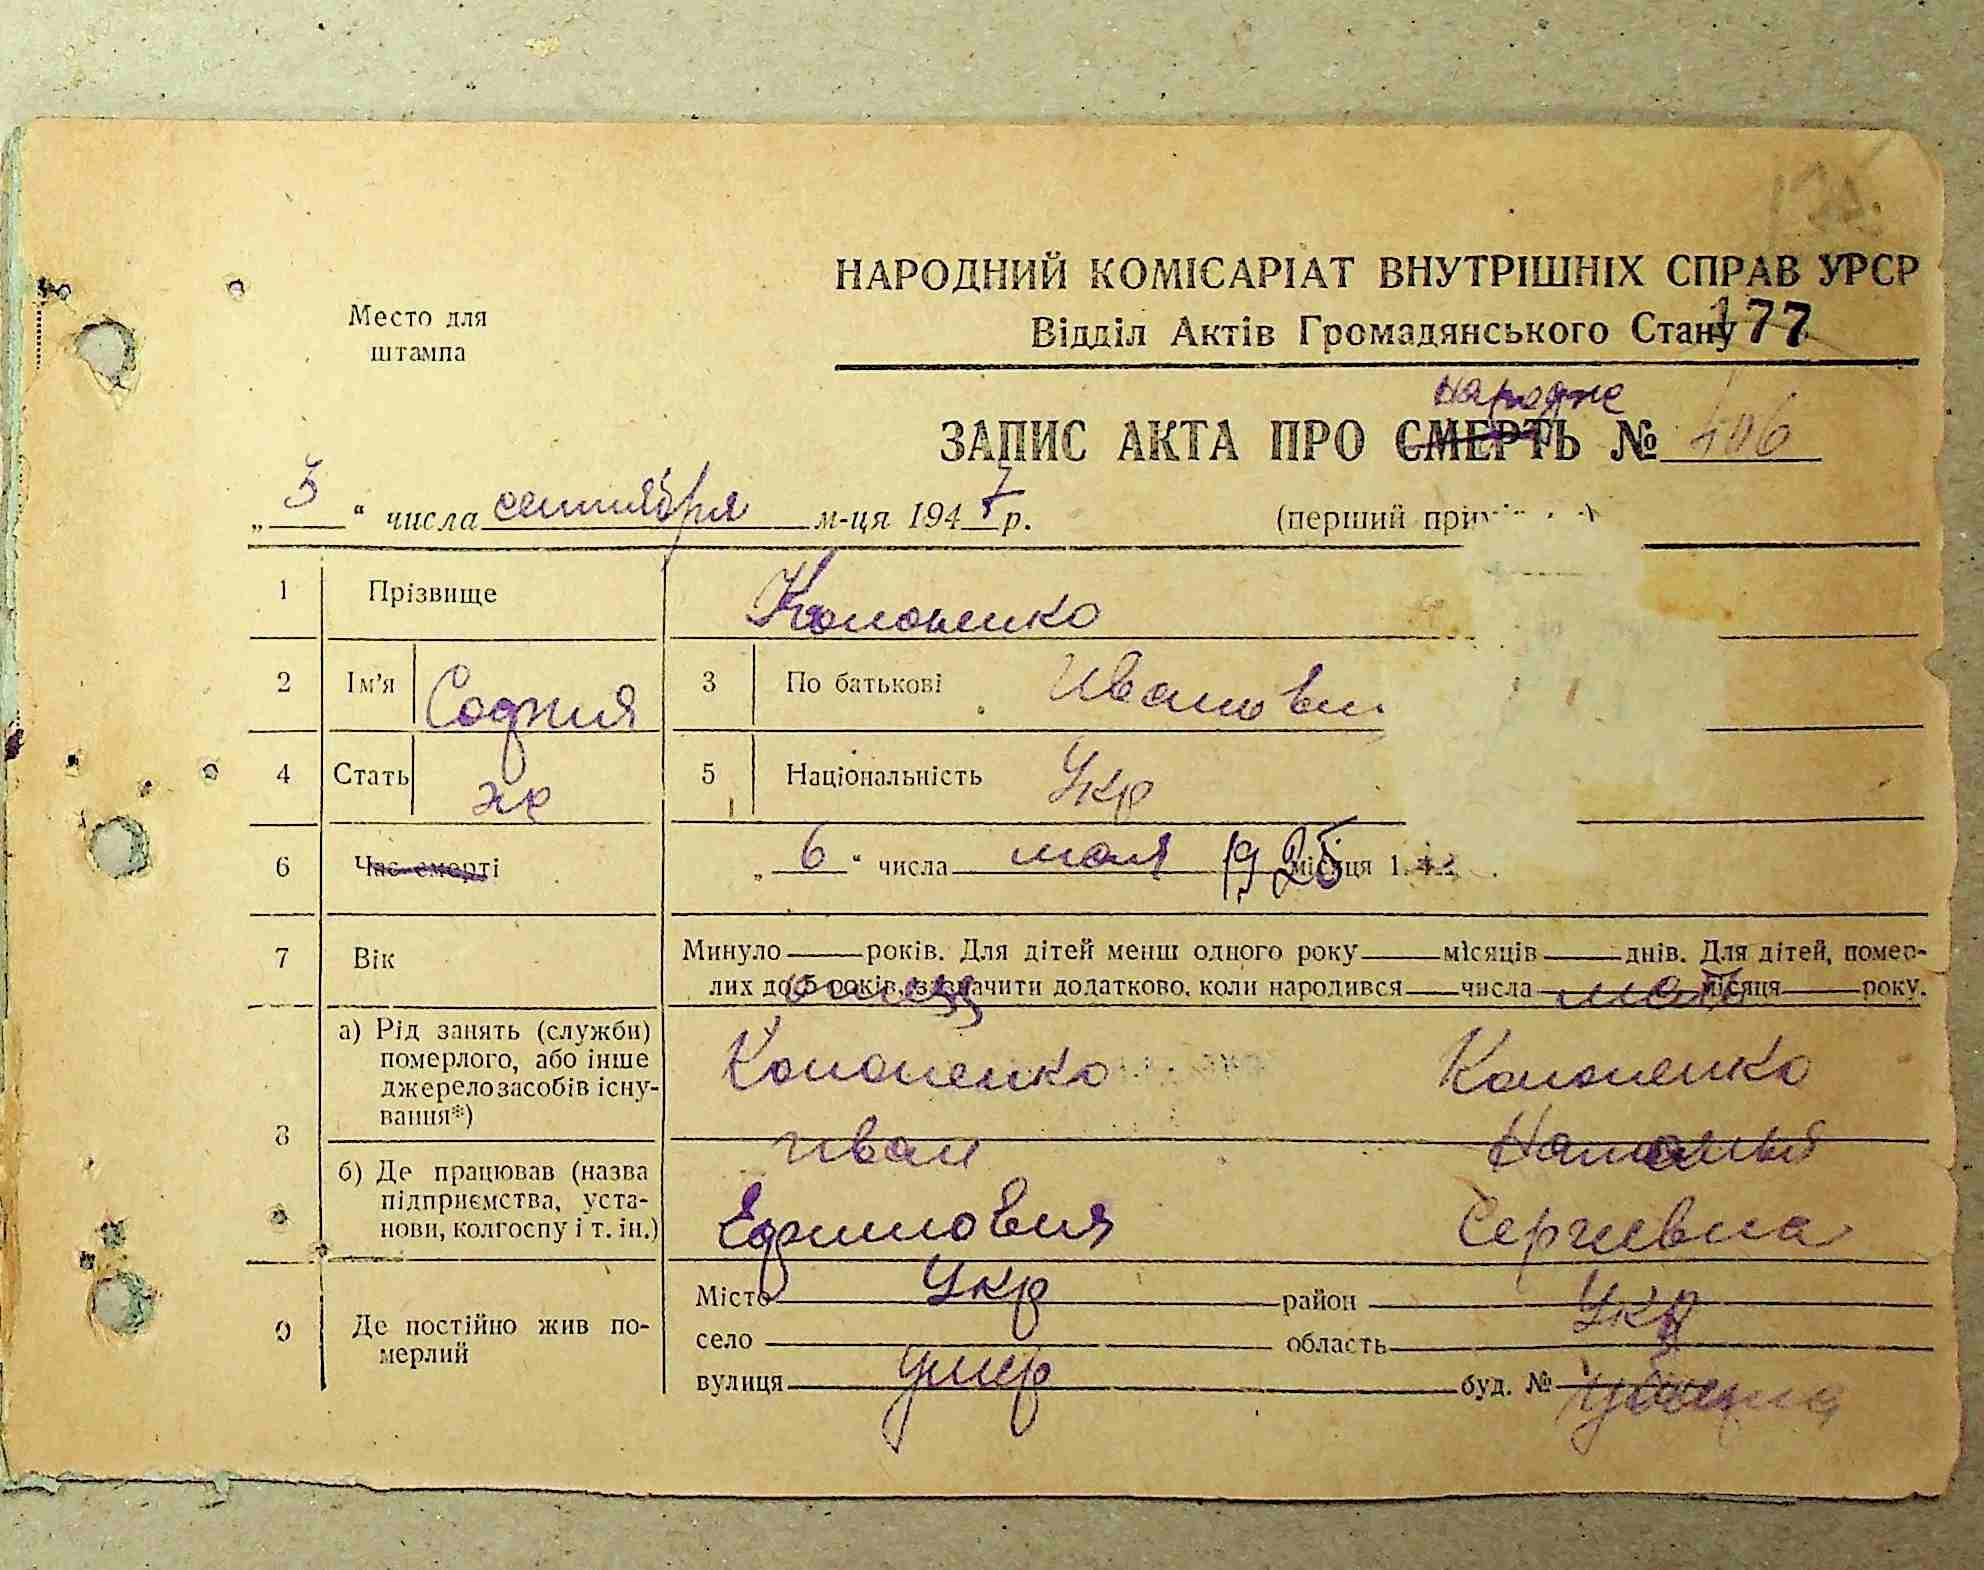 Место для
штампа
НАРОДНИЙ КОМІСАРІАТ ВНУТРІШНІХ СПРАВ УРСР
Відділ Актів Громадянського Стану 177
народже
ЗАПИС АКТА ПРО СМЕРТЬ № 406
„ 3 “ числа сентября м-ця 1947 р. (перший
1 Прізвище Кононенко
2 Ім'я София 3 По батькові Ивановн
4 Стать ж 5 Національність Укр
6 Час смерті „ 6 “ числа мая 1925 місяця
7 Вік Минуло років. Для дітей менш одного року місяців днів. Для дітей, помер-
лих до 5 років, зазначити додатково, коли народився числа місяця року.
отец мать
8 а) Рід занять (служби)
померлого, або інше
джерело засобів існу-
вання*)
Кононенко Кононенко
Иван Наталия
б) Де працював (назва
підприємства, уста-
нови, колгоспу і т. ін.)
Ефимович Сергиевна
9 Де постійно жив по-
мерлий
Місто Укр район Укр
село область
вулиця умер буд. №